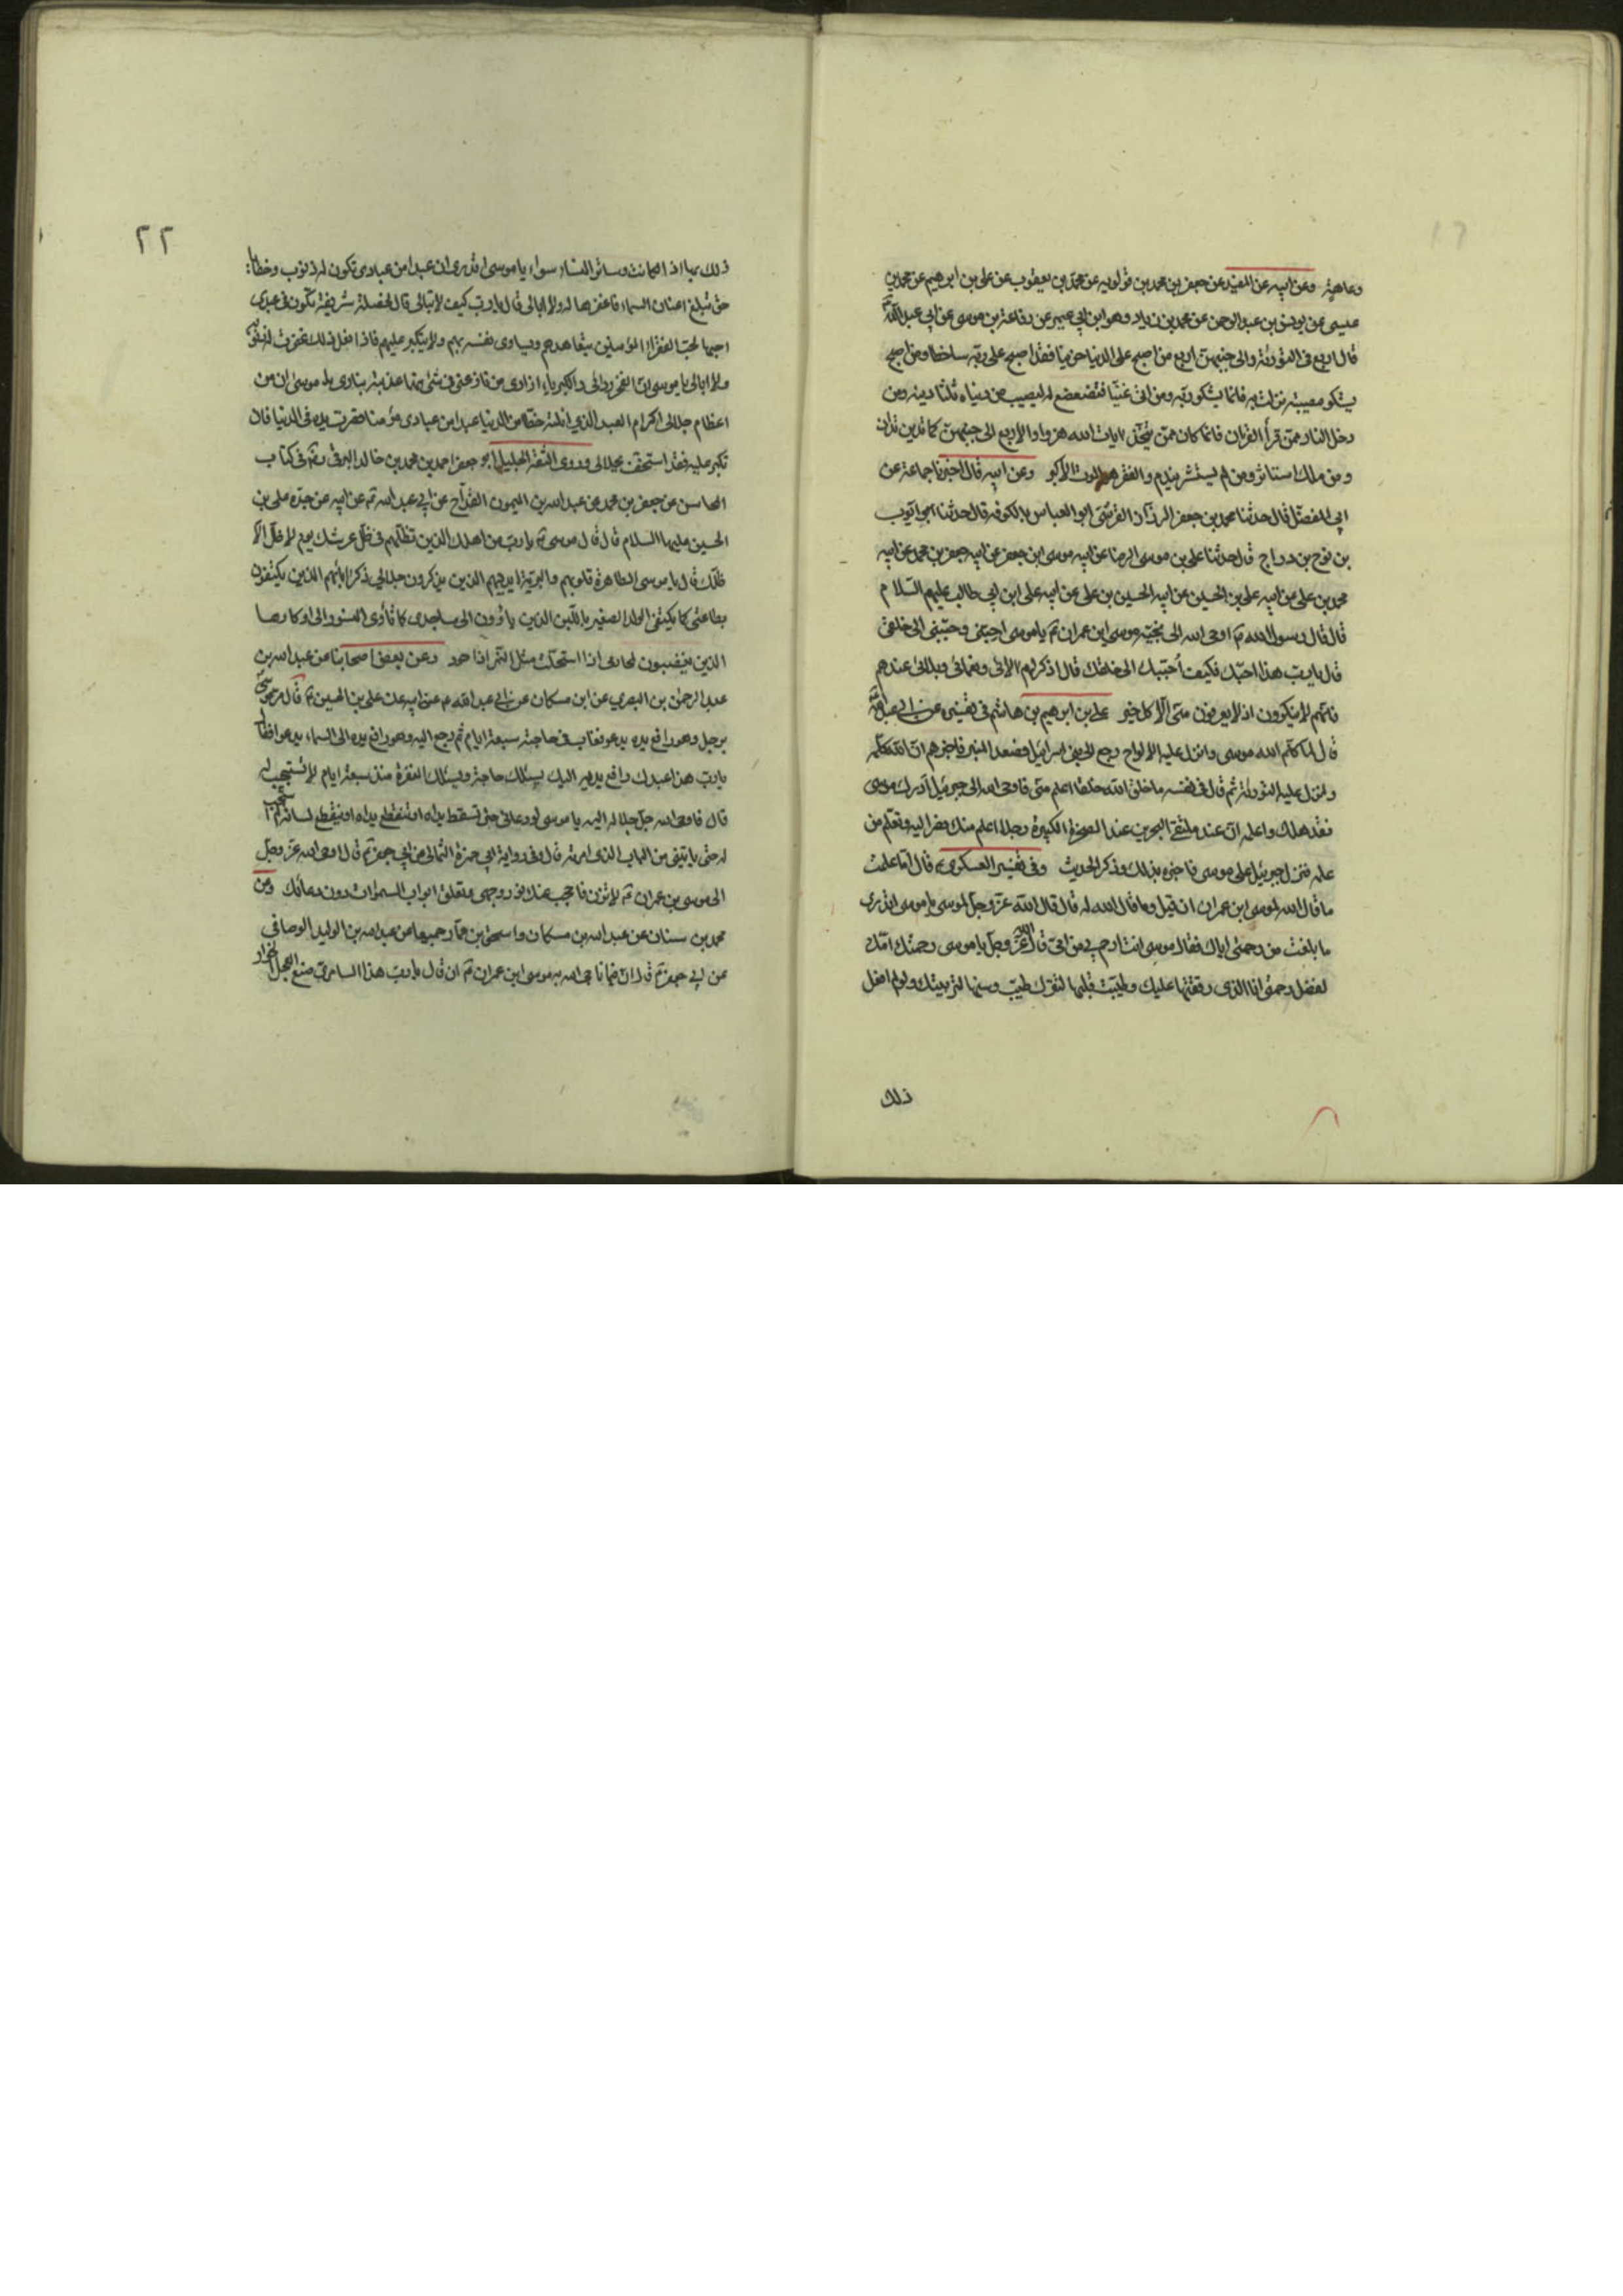 وعاهة وعن ابيه عن المفيد عن جعفر بن محمد بن قولويه عن محمد بن يعقوب عن علي بن ابرهيم عن محمد بن
عيسى عن يونس بن عبدالرحمن عن محمد بن زياد وهو ابن ابي عمير عن رفاعة بن موسى عن ابي عبدالله ع
قال اربع في التورية والى جنبهن اربع من اصبح على الدنيا حزينا فقد اصبح على ربه ساخطا ومن اصبح
يشكو مصيبة نزلت به فانما يشكو ربه ومن اتى غنيا فتضعضع له ليصيب من دنياه ثلثا دينه ومن
دخل النار ممن قرأ القران فانما كان ممن يتخذ ايات الله هزوا والاربع الى جنبهن كما تدين تدان
ومن ملك استاثر ومن لم يستشر يندم والفقر هو الموت الاكبر وعن ابيه قال اخبرنا جماعة عن
ابي المفضل قال حدثنا محمد بن جعفر الرزاز القرشي ابو العباس بالكوفة قال حدثنا ايوب
بن نوح بن دراج قال حدثنا علي بن موسى الرضا عن ابيه موسى ابن جعفر عن ابيه جعفر بن محمد عن ابيه
محمد بن علي عن ابيه علي بن الحسين عن ابيه الحسين بن علي عن ابيه علي ابن ابي طالب عليهم السلام
قال قال رسول الله ص اوحى الله الى نجيه موسى ابن عمران ع يا موسى احببني وحببني الى خلقي
قال يا رب هذا احبك فكيف أحببك الى خلقك قال اذكر لهم الائي ونعمائي وبلائي عندهم
فانهم لا يذكرون اذ لا يعرفون مني الا كل خير علي بن ابرهيم بن هاشم في تفسيره عن ابي عبدالله ع
قال لما كلم الله موسى وانزل عليه الالواح رجع الى بني اسرائيل فصعد المنبر فاخبرهم ان الله كلمه
وانزل عليه التورية ثم قال في نفسه ما خلق الله خلقا اعلم مني فاوحى الله الى جبرئيل ادرك موسى
فقد هلك واعلمه ان عند ملتقى البحرين عند الصخرة الكبيرة رجلا اعلم منك فصر اليه وتعلم من
علمه فنزل جبرئيل على موسى فاخبره بذلك وذكر الحديث وفي تفسير العسكري ع قال اما علمت
ما قال الله لموسى ابن عمران ان قيل وما قال الله له قال قال الله عز وجل لموسى يا موسى اتدري
ما بلغت من رحمتي اياك فقال موسى انت ارحم بي من امي قال الله عز وجل يا موسى رحمتك امك
لفضل رحمتي انا الذي رققتها عليك وطيبت قلبها لتترك طيب وسنها لتربيتك ولو لم افعل
ذلك
٢٢
ذلك بها اذا لكانت وسائر النساء سواء يا موسى اتدري ان عبدا من عبادي تكون له ذنوب وخطايا
حتى تبلغ اعنان السماء فاغفرها له ولا ابالي قال يا رب كيف لا تبالي قال لخصلة شريفة تكون في عبدي
احبها لحب الفقراء المؤمنين يتعاهدهم ويساوي نفسه بهم ولا يتكبر عليهم فاذا فعل ذلك غفرت له ذنوبه
ولا ابالي يا موسى ان الفخر ردائي والكبرياء ازاري من نازعني في شئ منهما عذبته بناري يا موسى ان من
اعظام جلالي اكرام العبد الذي انلته حظا من الدنيا عبدا من عبادي مؤمنا قصرت يده في الدنيا فان
تكبر عليه فقد استخف بجلالي وروى الثقة الجليل ابو جعفر احمد بن محمد بن خالد البرقي ره في كتاب
المحاسن عن جعفر بن محمد عن عبدالله بن الميمون القداح عن ابي عبدالله ع عن ابيه عن جده علي بن
الحسين عليهما السلام قال قال موسى ع يا رب من اهلك الذين تظلهم في ظل عرشك يوم لا ظل الا
ظلك قال يا موسى الطاهرة قلوبهم والبرية ايديهم الذين يذكرون جلالي ذكر ابائهم الذين يكتفون
بطاعتي كما يكتفي الولد الصغير باللبن الذين ياوون الى مساجدي كما تأوي النسور الى اوكارها
الذين يغضبون لمحارمي اذا استحلت مثل النمر اذا حرد وعن بعض اصحابنا عن عبدالله بن
عبدالرحمن بن البصري عن ابن مسكان عن ابي عبدالله ع عن ابيه عن علي بن الحسين ع قال مر موسى
برجل وهو رافع يده يدعو فغاب في حاجته سبعة ايام ثم رجع اليه وهو رافع يده الى السماء يدعو فقال
يا رب هذا عبدك رافع يديه اليك يسئلك حاجة ويسئلك المغفرة منذ سبعة ايام لا تستجيب له
قال فاوحى الله جل جلاله اليه يا موسى لو دعاني حتى تسقط يداه او تنقطع يداه او ينقطع لسانه ما استجبت
له حتى ياتيني من الباب الذي امرته قال وفي رواية ابي حمزة الثمالي عن ابي جعفر ع قال اوحى الله عز وجل
الى موسى بن عمران ع
محمد بن سنان عن عبدالله بن مسكان واسحق بن عمار جميعا عن عبدالله بن الوليد الوصافي
عن ابي جعفر ع قال ان فيما ناجى الله به موسى ابن عمران ع ان قال يا رب هذا السامري صنع العجل الخوار